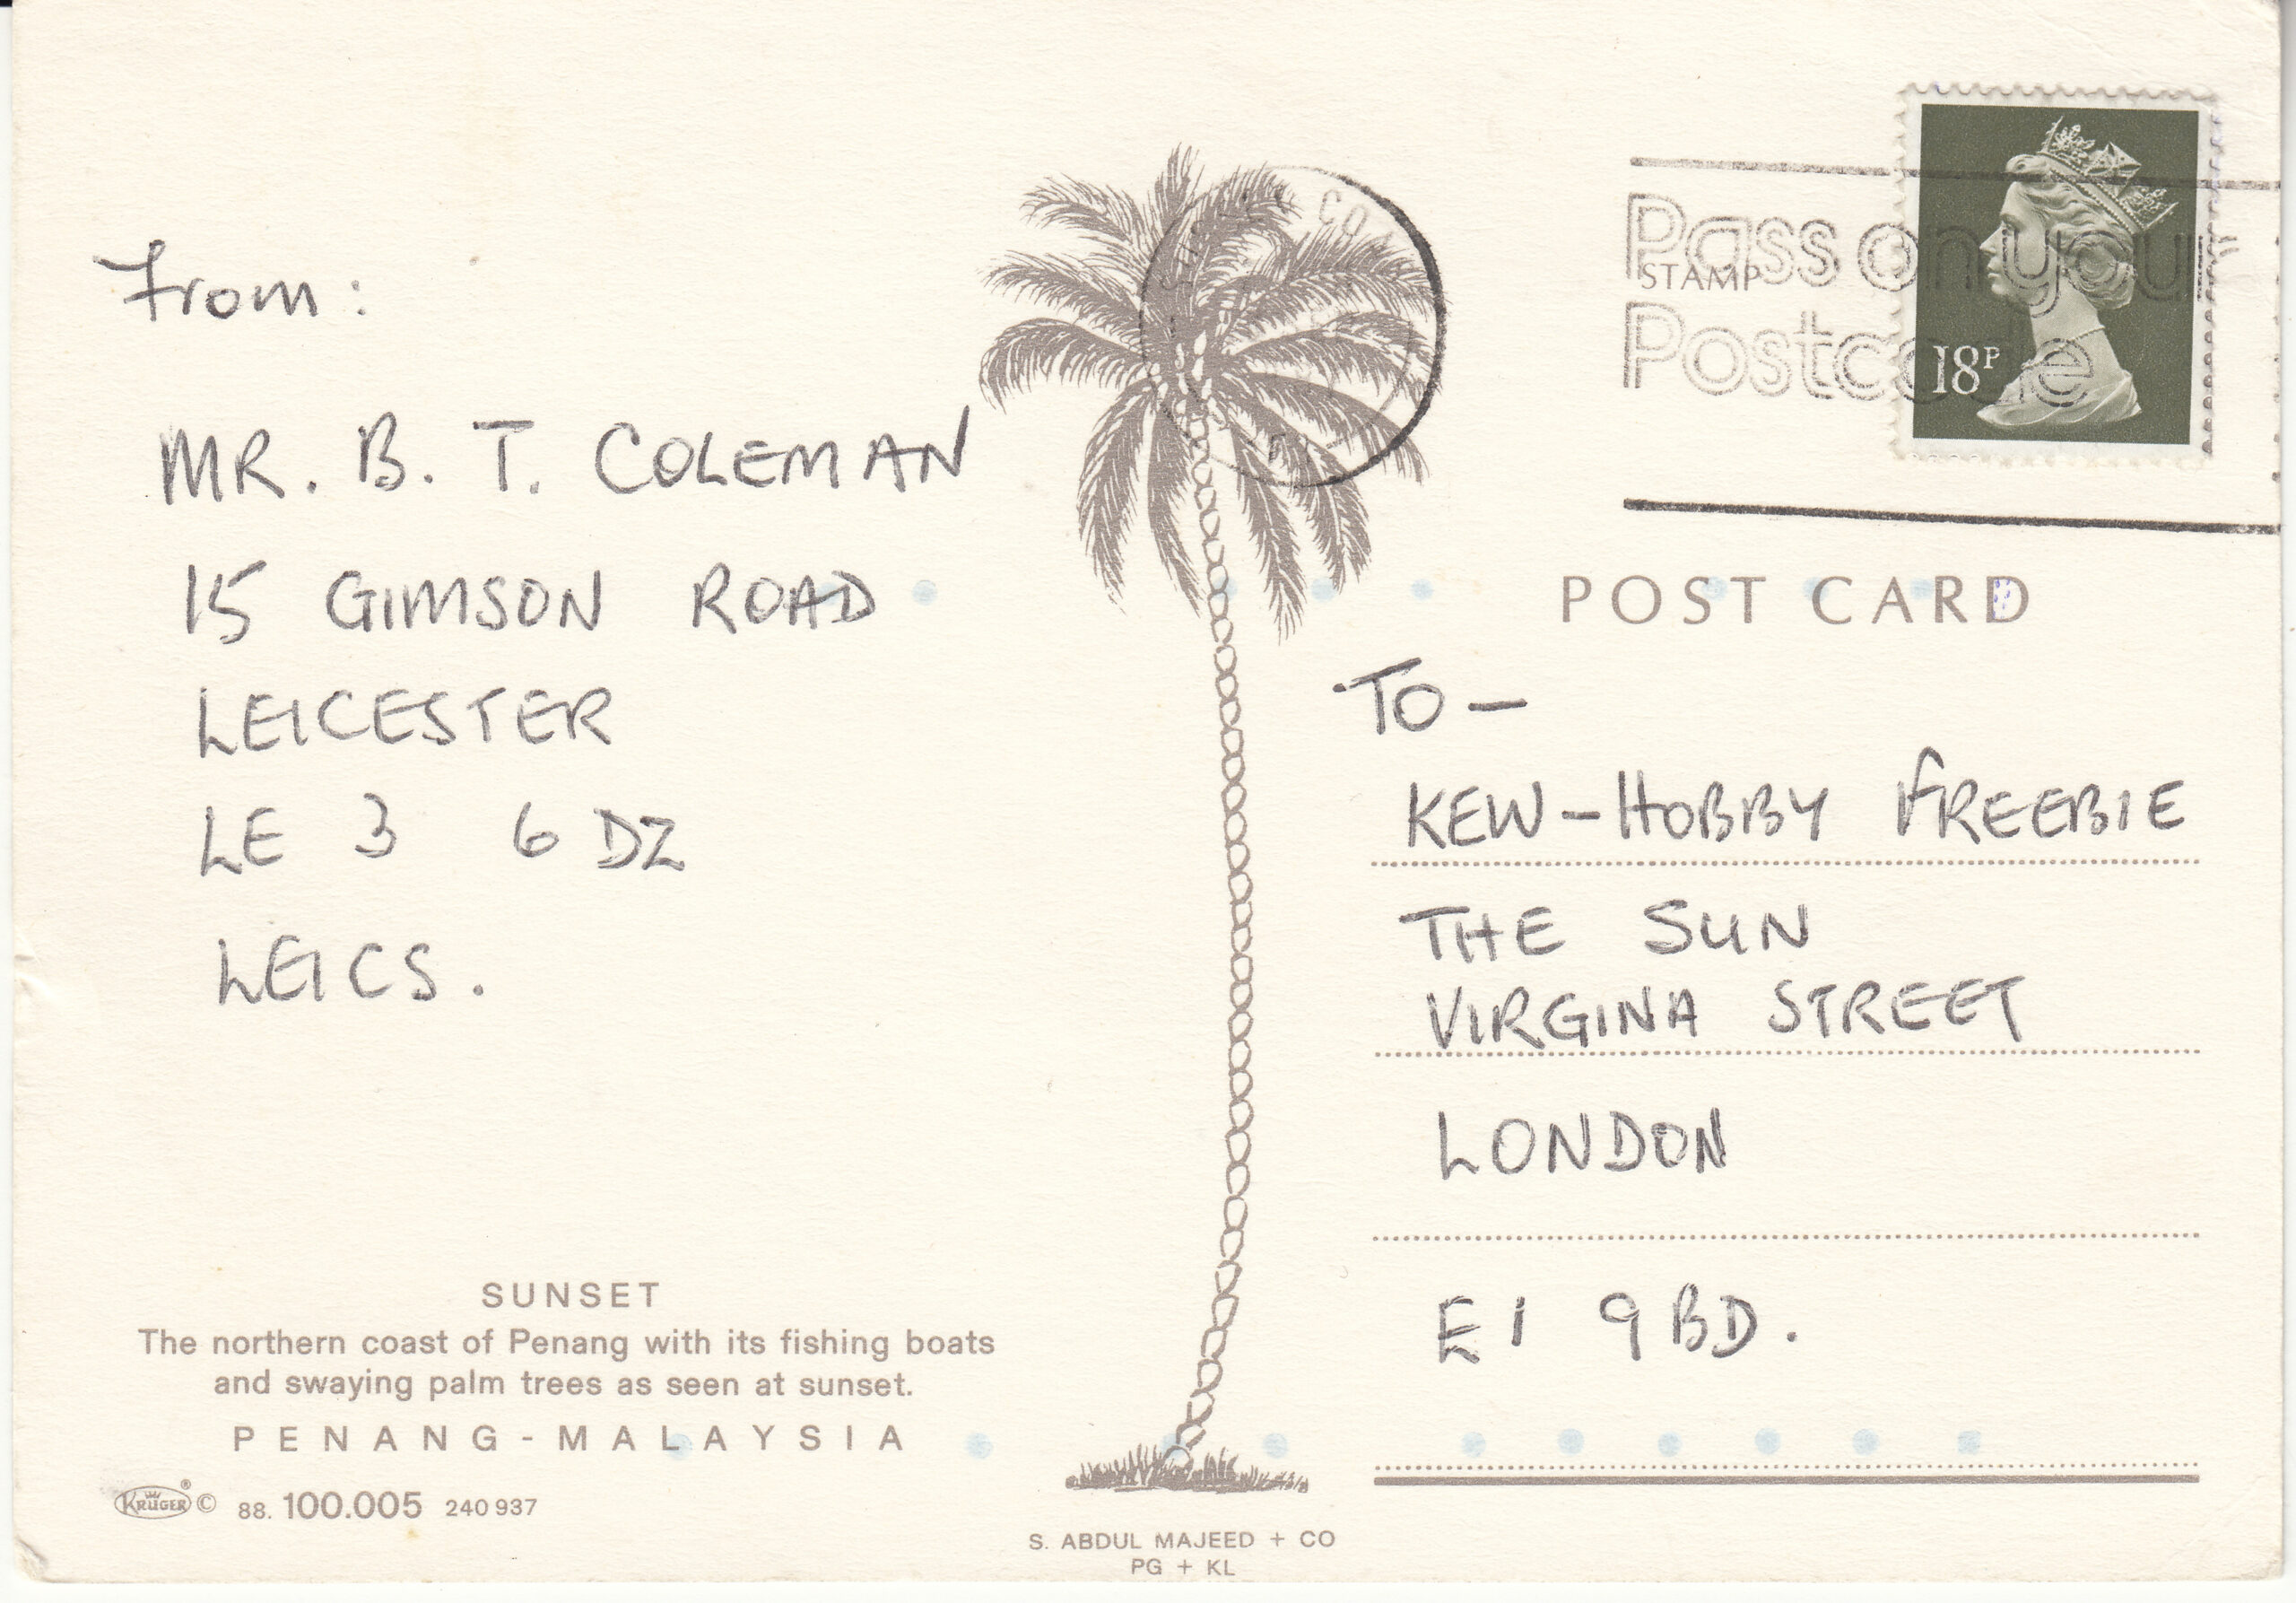 From:
MR. B. T. COLEMAN
15 GIMSON ROAD
LEICESTER
LE 3 6 DZ
LEICS.
SUNSET
The northern coast of Penang with its fishing boats
and swaying palm trees as seen at sunset.
PENANG-MALAYSIA
KRÜGER ® © 88. 100.005 240 937
S. ABDUL MAJEED + CO
PG + KL
Pass on your
STAMP
Postcode
18P
POST CARD
TO -
KEW-HOBBY FREEBIE
THE SUN
VIRGINA STREET
LONDON
E1 9BD.